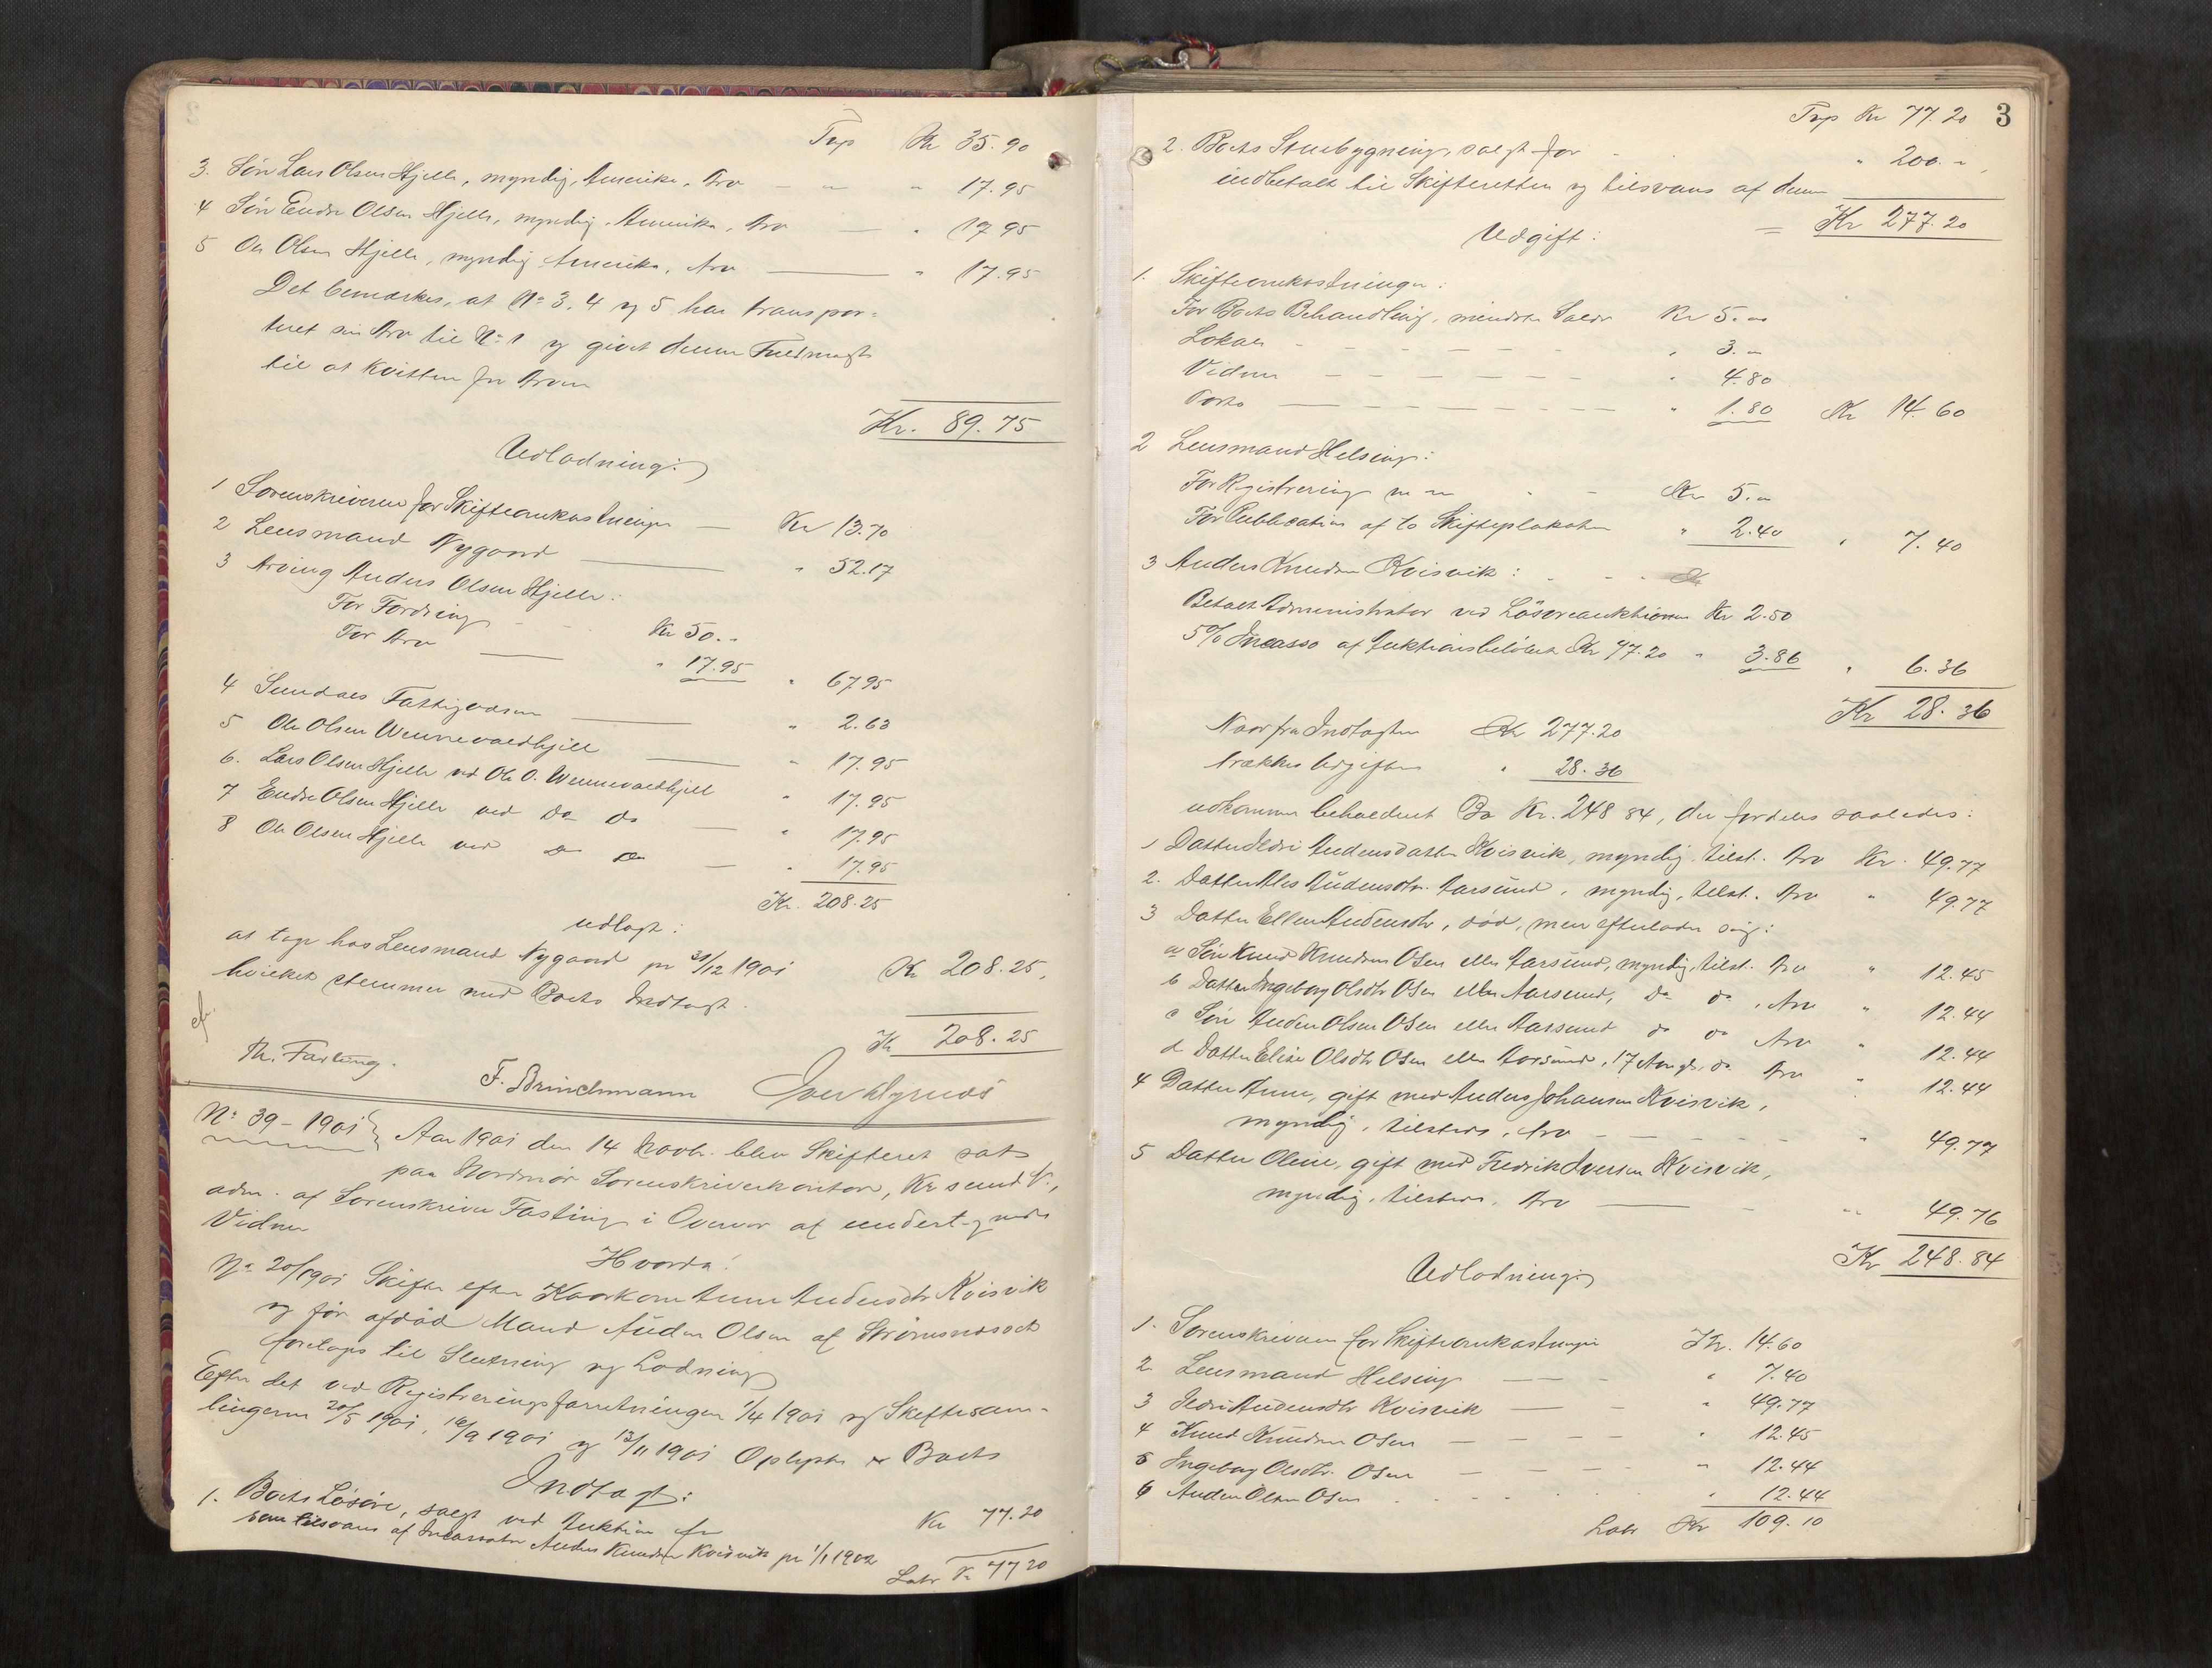 Trp Kr 35.90
3. Søn Lars Olsen Hjelle, myndig, Amerika, Arv — " — " 17.95
4 Søn Endre Olsen Hjelle, myndig, Amerika, Arv — " 17.95
5 Ole Olsen Hjelle, myndig Amerika, Arv — " 17.95
Det bemærkes, at No 3, 4 og 5 har transpor=
teret sin Arv til No 1 og givet denne Fuldmagt
til at kvittere for Arven
Kr. 89.75
Udlodning:
1 Sorenskriveren for Skifteomkostninger — Kr 13.70
2 Lensmand Nygaard — " 52.17
3 Arving Anders Olsen Hjelle:
For Fordring - - Kr 50.-
For Arv — " 17.95 " 67.95
4 Sundals Fattigvæsen — " 2.63
5 Ole Olsen Wennevoldhjell — " 17.95
6. Lars Olsen Hjelle ved Ole O. Wennevoldhjell " 17.95
7 Endre Olsen Hjelle ved Do Do — " 17.95
8 Ole Olsen Hjelle ved Do Do — " 17.95
Kr. 208.25
udlagt:
at tage hos Lensmand Nygaard pr 31/12 1901 Kr 208.25.
hvilket stemmer med Boets Indtægt.
Kr 208.25
Th. Fasting.
F. Brinchmann
No 39 - 1901 } Aar 1901 den 14 Novbr. blev Skifteret sat
paa Nordmør Sorenskriverkontor, Kr.sund N.,
adm. af Sorenskriver Fasting i Overvær af undertegnede
Vidner
Hvorda:
No 20/1901 Skifte efter Kaarkone Anne Audensdtr Kvisvik
og før afdød Mand Auden Olsen af Strømsnæsset
foretages til Slutning og Lodning
Efter det ved Registreringsforretningen 1/4 1901 og Skiftesam-
lingerne 20/5 1901, 16/9 1901 og 13/11 1901 Oplyste er Boets
Indtægt:
1. Boets Løsøre, solgt ved Auktion for Kr 77.20
som tilsvares af Incassator Anders Knudsen Kvisvik pr 1/1 1902
Latr Kr 77 20
3
Trp Kr 77.20
2. Boets Stuebygning, solgt for - " 200.-
indbetalt til Skifteretten og tilsvares af denne
= Kr 277.20
Udgift:
1. Skifteomkostninger:
For Boets Behandling, mindste Salær Kr 5.00
Lokale - - - - - - " 3.-
Vidner - - - - - - " 4.80
Porto - - - - - - " 1.80 Kr 14.60
2 Lensmand Helsing:
For Registrering m m - - Kr 5.00
For Publication af to Skifteplakater " 2.40 " 7.40
3 Anders Knudsen Kvisvik: - - -
Betalt Administrator ved Løsøreauktionen Kr 2.50
5% Incasso af Auktionsbeløbet Kr 77.20 " 3.86 " 6.36
Kr 28.36
Naar fra Indtægten Kr 277.20
trækkes Udgiften " 28.36
udkommer beholdent Bo Kr. 248 84, der fordeles saaledes:
1 Datter Jedri Audensdatter Kvisvik, myndig, tilst. Arv Kr. 49.77
2. Datter Ales Audensdtr. Aarsund, myndig, tilst. Arv " 49.77
3 Datter Ellen Audensdtr, død, men efterlader sig:
a Søn Knud Knudsen Osen eller Aarsund, myndig, tilst. Arv " 12.45
b Datter Ingeborg Olsdtr Osen eller Aarsund, Do do, Arv " 12.44
c Søn Auden Olsen Osen eller Aarsund do do Arv " 12.44
d Datter Elise Olsdtr Osen eller Aarsund, 17 Aar gl. do Arv " 12.44
4 Datter Anne, gift med Anders Johansen Kvisvik,
myndig, tilstede, Arv - - - - " 49.77
5 Datter Oline, gift med Fredrik Iversen Kvisvik,
myndig, tilstede, Arv — - " 49.76
Kr 248.84
Udlodning:
1. Sorenskriveren for Skifteomkostninger Kr. 14.60
2 Lensmand Helsing — — - " 7.40
3 Jedri Audensdtr Kvisvik — — " 49.77
4 Knud Knudsen Osen — - - " 12.45
5 Ingeborg Olsdtr. Osen — - - " 12.44
6 Auden Olsen Osen - - - - " 12.44
Latr Kr 109.10